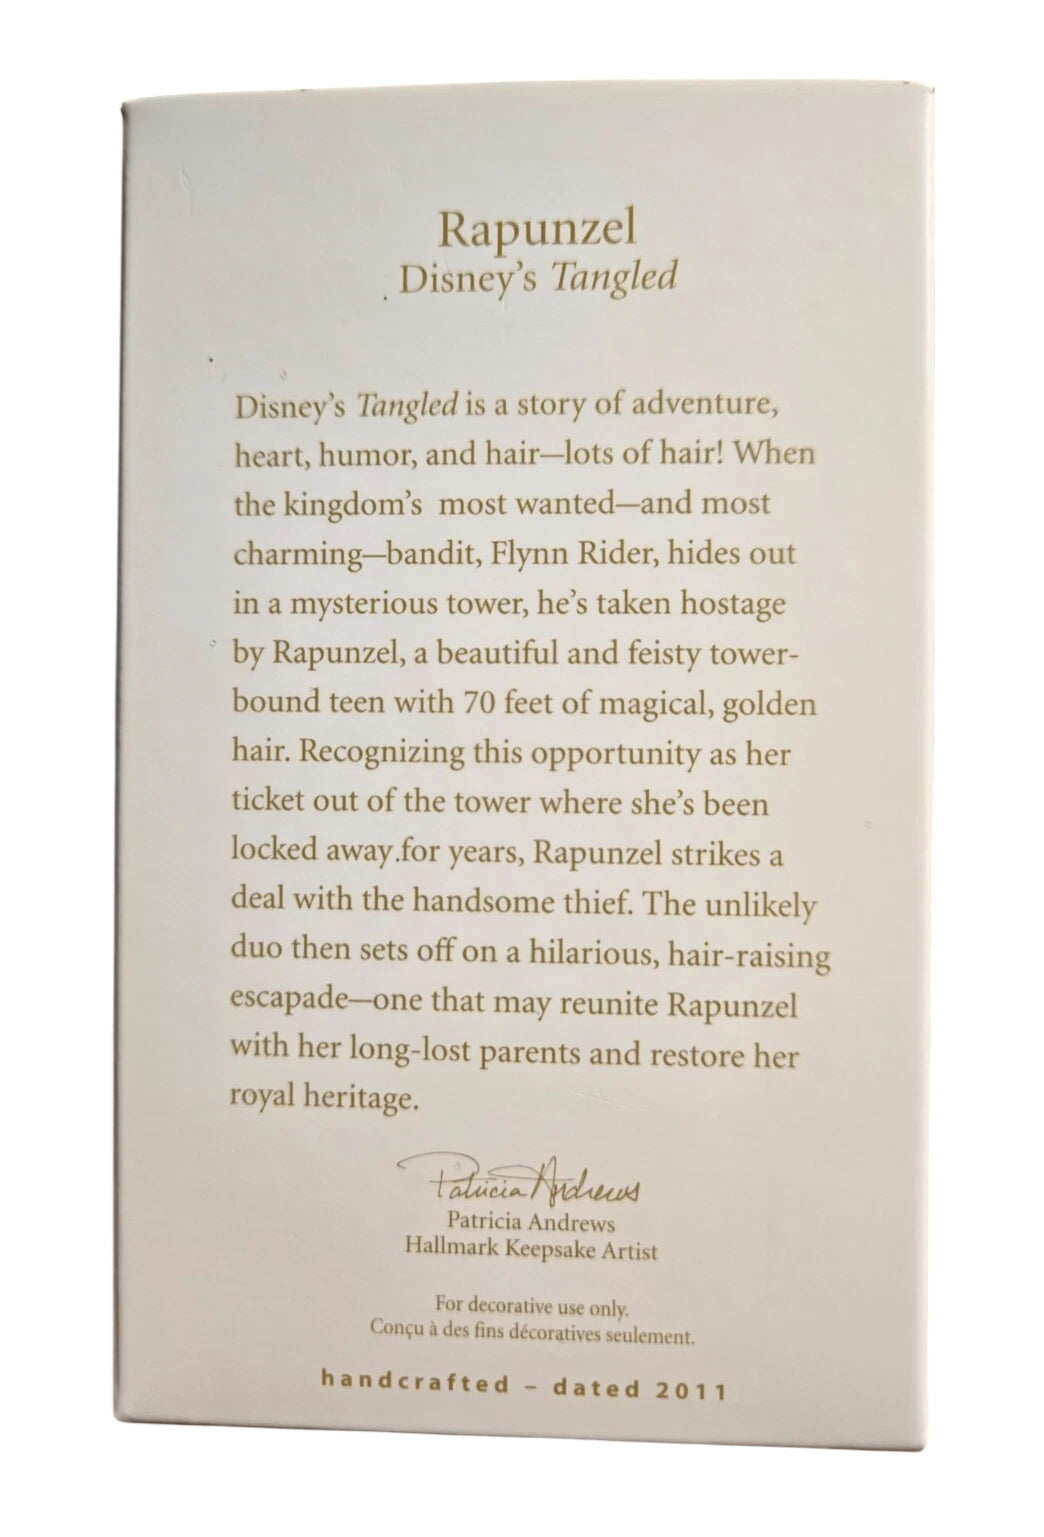 Rapunzel
Disney’s Tangled
Disney’s Tangled is a story of adventure,
heart, humor, and hair—lots of hair! When
the kingdom’s  most wanted—and most
charming—bandit, Flynn Rider, hides out
in a mysterious tower, he’s taken hostage
by Rapunzel, a beautiful and feisty tower-
bound teen with 70 feet of magical, golden
hair. Recognizing this opportunity as her
ticket out of the tower where she’s been
locked away for years, Rapunzel strikes a
deal with the handsome thief. The unlikely
duo then sets off on a hilarious, hair-raising
escapade—one that may reunite Rapunzel
with her long-lost parents and restore her
royal heritage.
Patricia Andrews
Patricia Andrews
Hallmark Keepsake Artist
For decorative use only.
Conçu à des fins décoratives seulement.
handcrafted – dated 2011